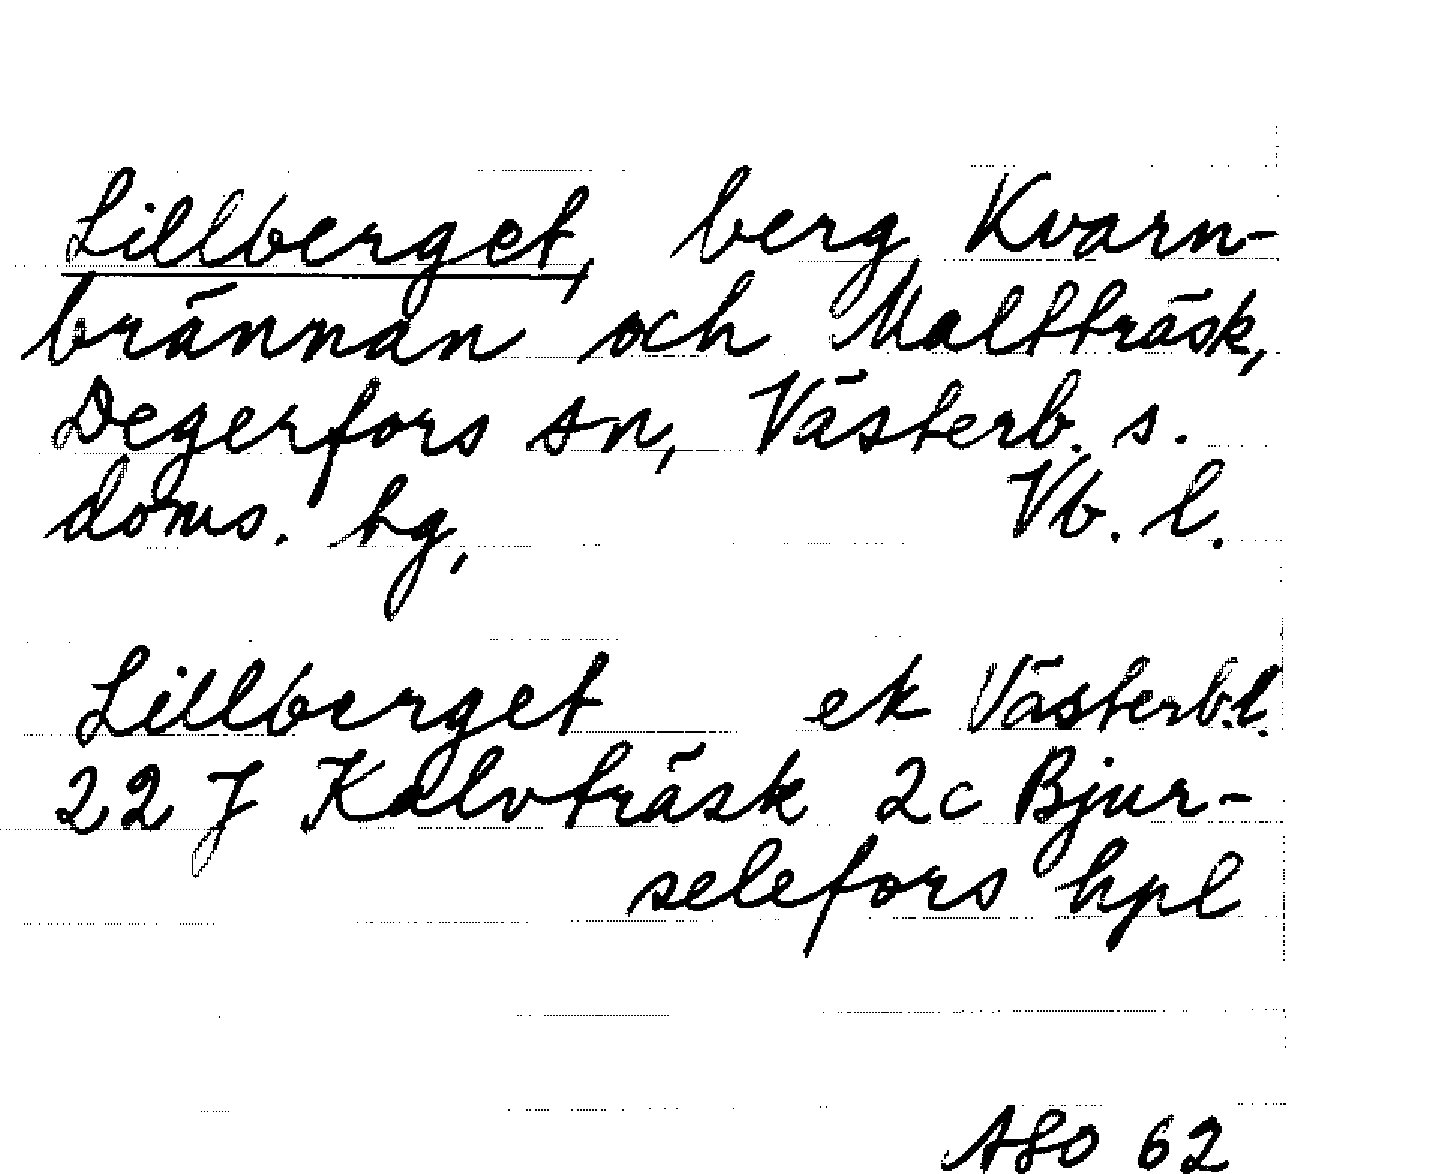 Lillberget, berg, Kvarn-
brännan och Maltträsk,
Degerfors sn, Västerb. s.
doms. hg, Vb. l.
Lillberget ek Västerb.l.
22 J Kalvträsk 2c Bjur-
selefors hpl
ASO 62